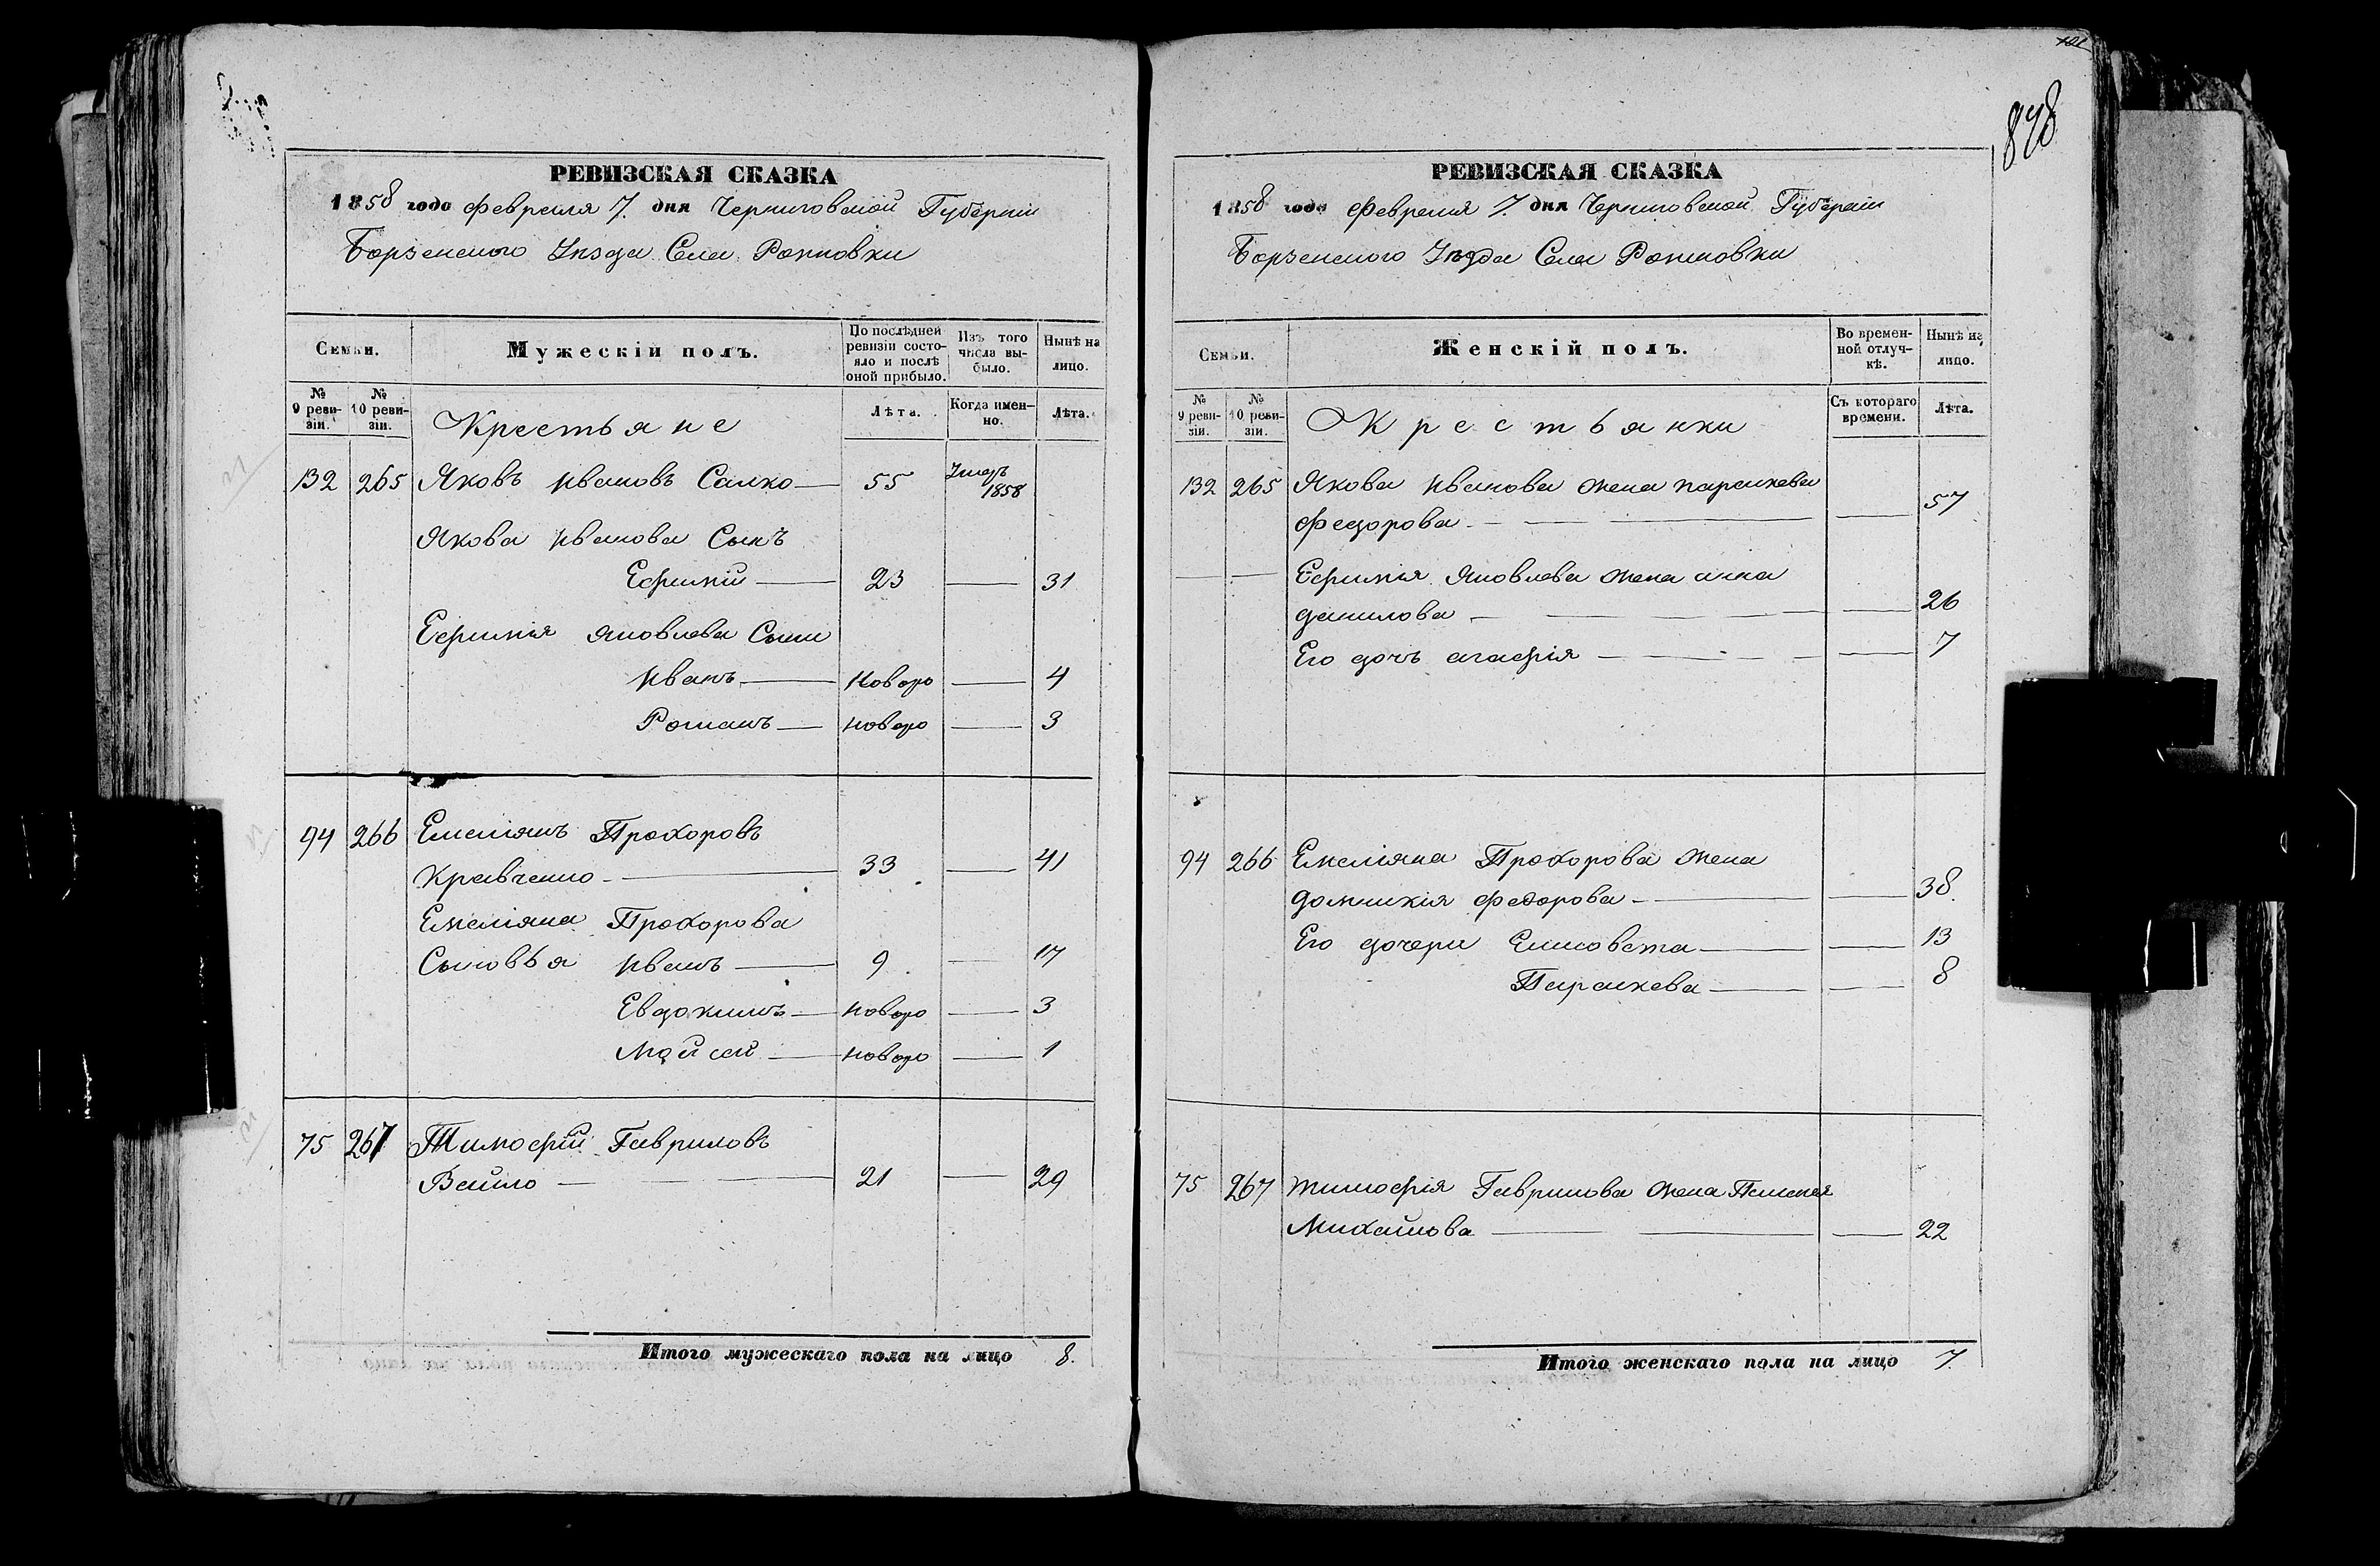 РЕВИЗСКАЯ СКАЗКА
1858 года февраля 7. дня Черниговской Губерніи
Борзенского Уезда Села
Семьи.
Мужескій полъ.
По послѣдней ревизіи состояло и послѣ оной прибыло.
Изъ того числа выбыло.
Нынѣ на лицо.
№ 9 ревизіи.
№ 10 ревизіи.
Крестьяне
Лѣта.
Когда именно.
Лѣта.
132 265 Яковъ Ивановъ Салко 55 Умеръ 1858
Якова Иванова Сынъ
Ефимій 23 31
Ефимія Яковлева Сыни
Иванъ новоро 4
Романъ новоро 3
94 266 Емеліянъ Прохоровъ
Кравченко 33 41
Емеліяна Прохорова
Сыновья Иванъ 9 17
Евдокимъ новоро 3
Мойсей новоро 1
75 267 Тимофій Гавриловъ
Вайло 21 29
Итого мужескаго пола на лицо 8.
101
848
РЕВИЗСКАЯ СКАЗКА
1858 года февраля 7. дня Черниговской Губерніи
Борзенского Уезда Села
Семьи.
Женскій полъ.
Во временной отлучкѣ.
Нынѣ на лицо.
№ 9 ревизіи.
№ 10 ревизіи.
Крестьянки
Съ котораго времени.
Лѣта.
132 265 Якова Иванова жена параскева
федорова 57
Ефимія Яковлева жена анна
данилова 26
Его дочъ агафія 7
94 266 Емеліяна Прохорова жена
домникія федорова 38.
Его дочери Елисовета 13
Параскева 8
75 267 тимофія Гаврилова жена
Михайлова 22
Итого женскаго пола на лицо 7.